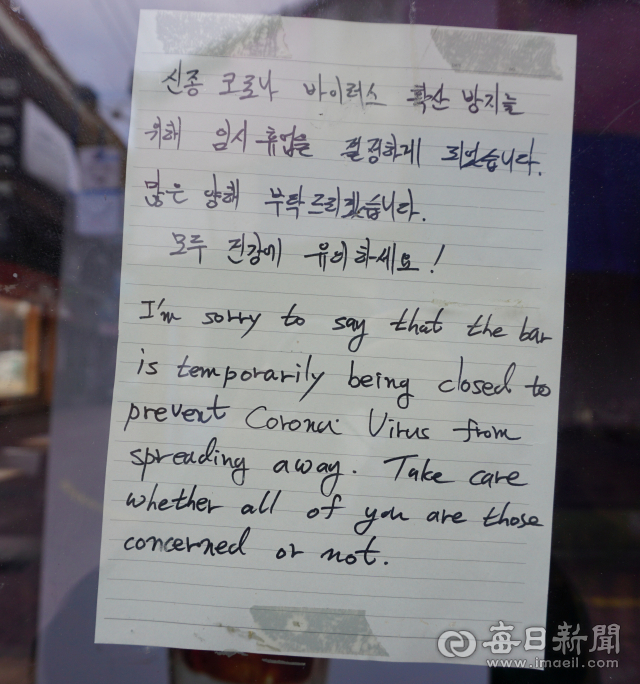 신종 코로나 바이러스 확산 방지를
위해 임시 휴업을 결정하게 되었습니다.
많은 양해 부탁드리겠습니다.
모두 건강에 유의하세요!
I'm sorry to say that the bar
is temporarily being closed to
prevent Corona Virus from
spreading away. Take care
whether all of you are those
concerned or not.
每日新聞
www.imaeil.com